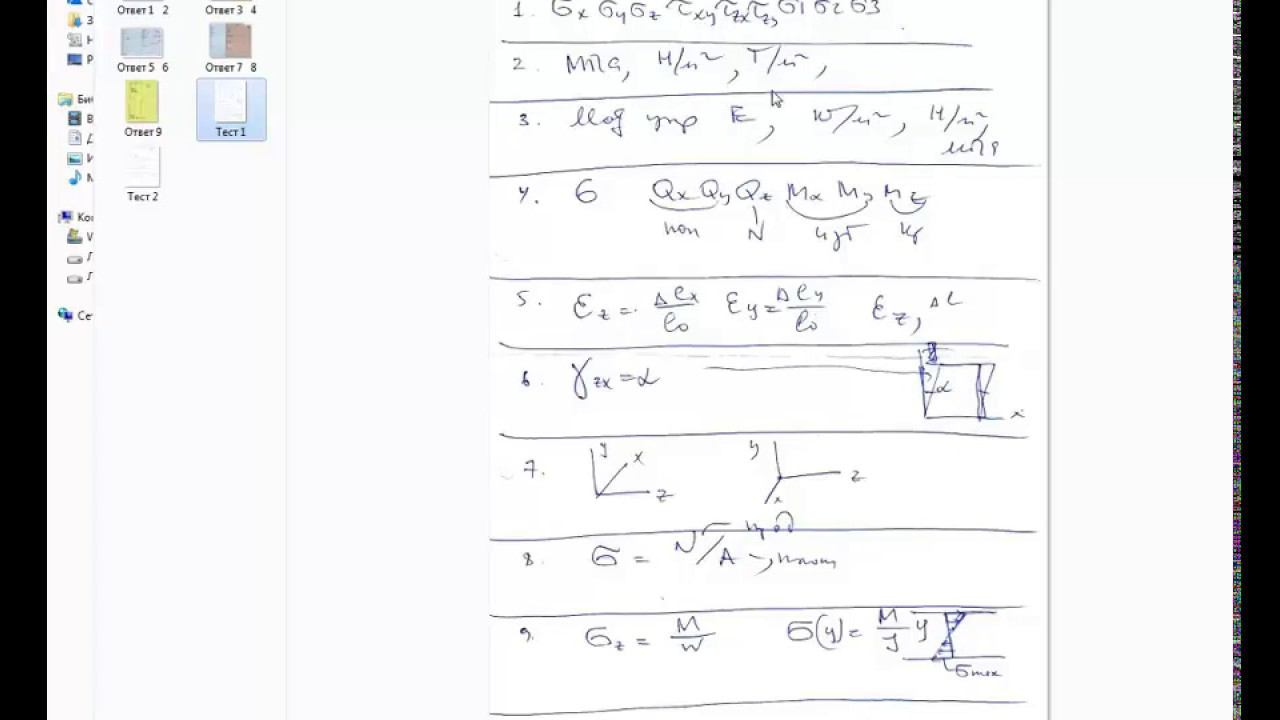 Ответ 1 2
Ответ 3 4
Ответ 5 6
Ответ 7 8
Ответ 9
Тест 1
Тест 2
Би
Ко
Се
1. σx σy σz τxy τzx τzy σ1 σ2 σ3
2. МПа, Н/м², Т/м²,
3. Мод упр E, Н/м²,
МПа
4. σ Qx Qy Qz Mx My Mz
поп N изг кр
5 εz = Δlx/l0 εy = Δly/l0 εz, Δl
6. γzx = α
α x
7. y x z y z x
8. σ = N/A
9 σz = M/W σ(y) = M/J y
σmax